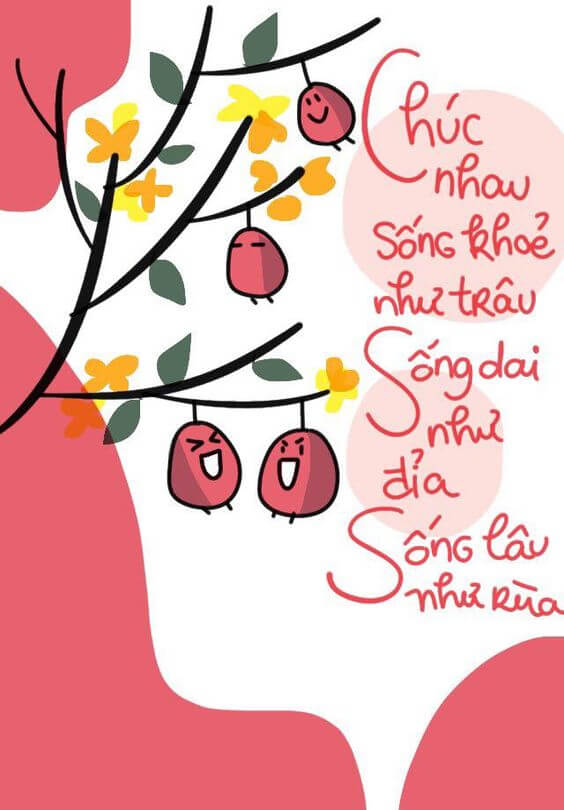 Chúc
nhau
sống khoẻ
như trâu
Sống dai
như
đỉa
Sống lâu
như rùa